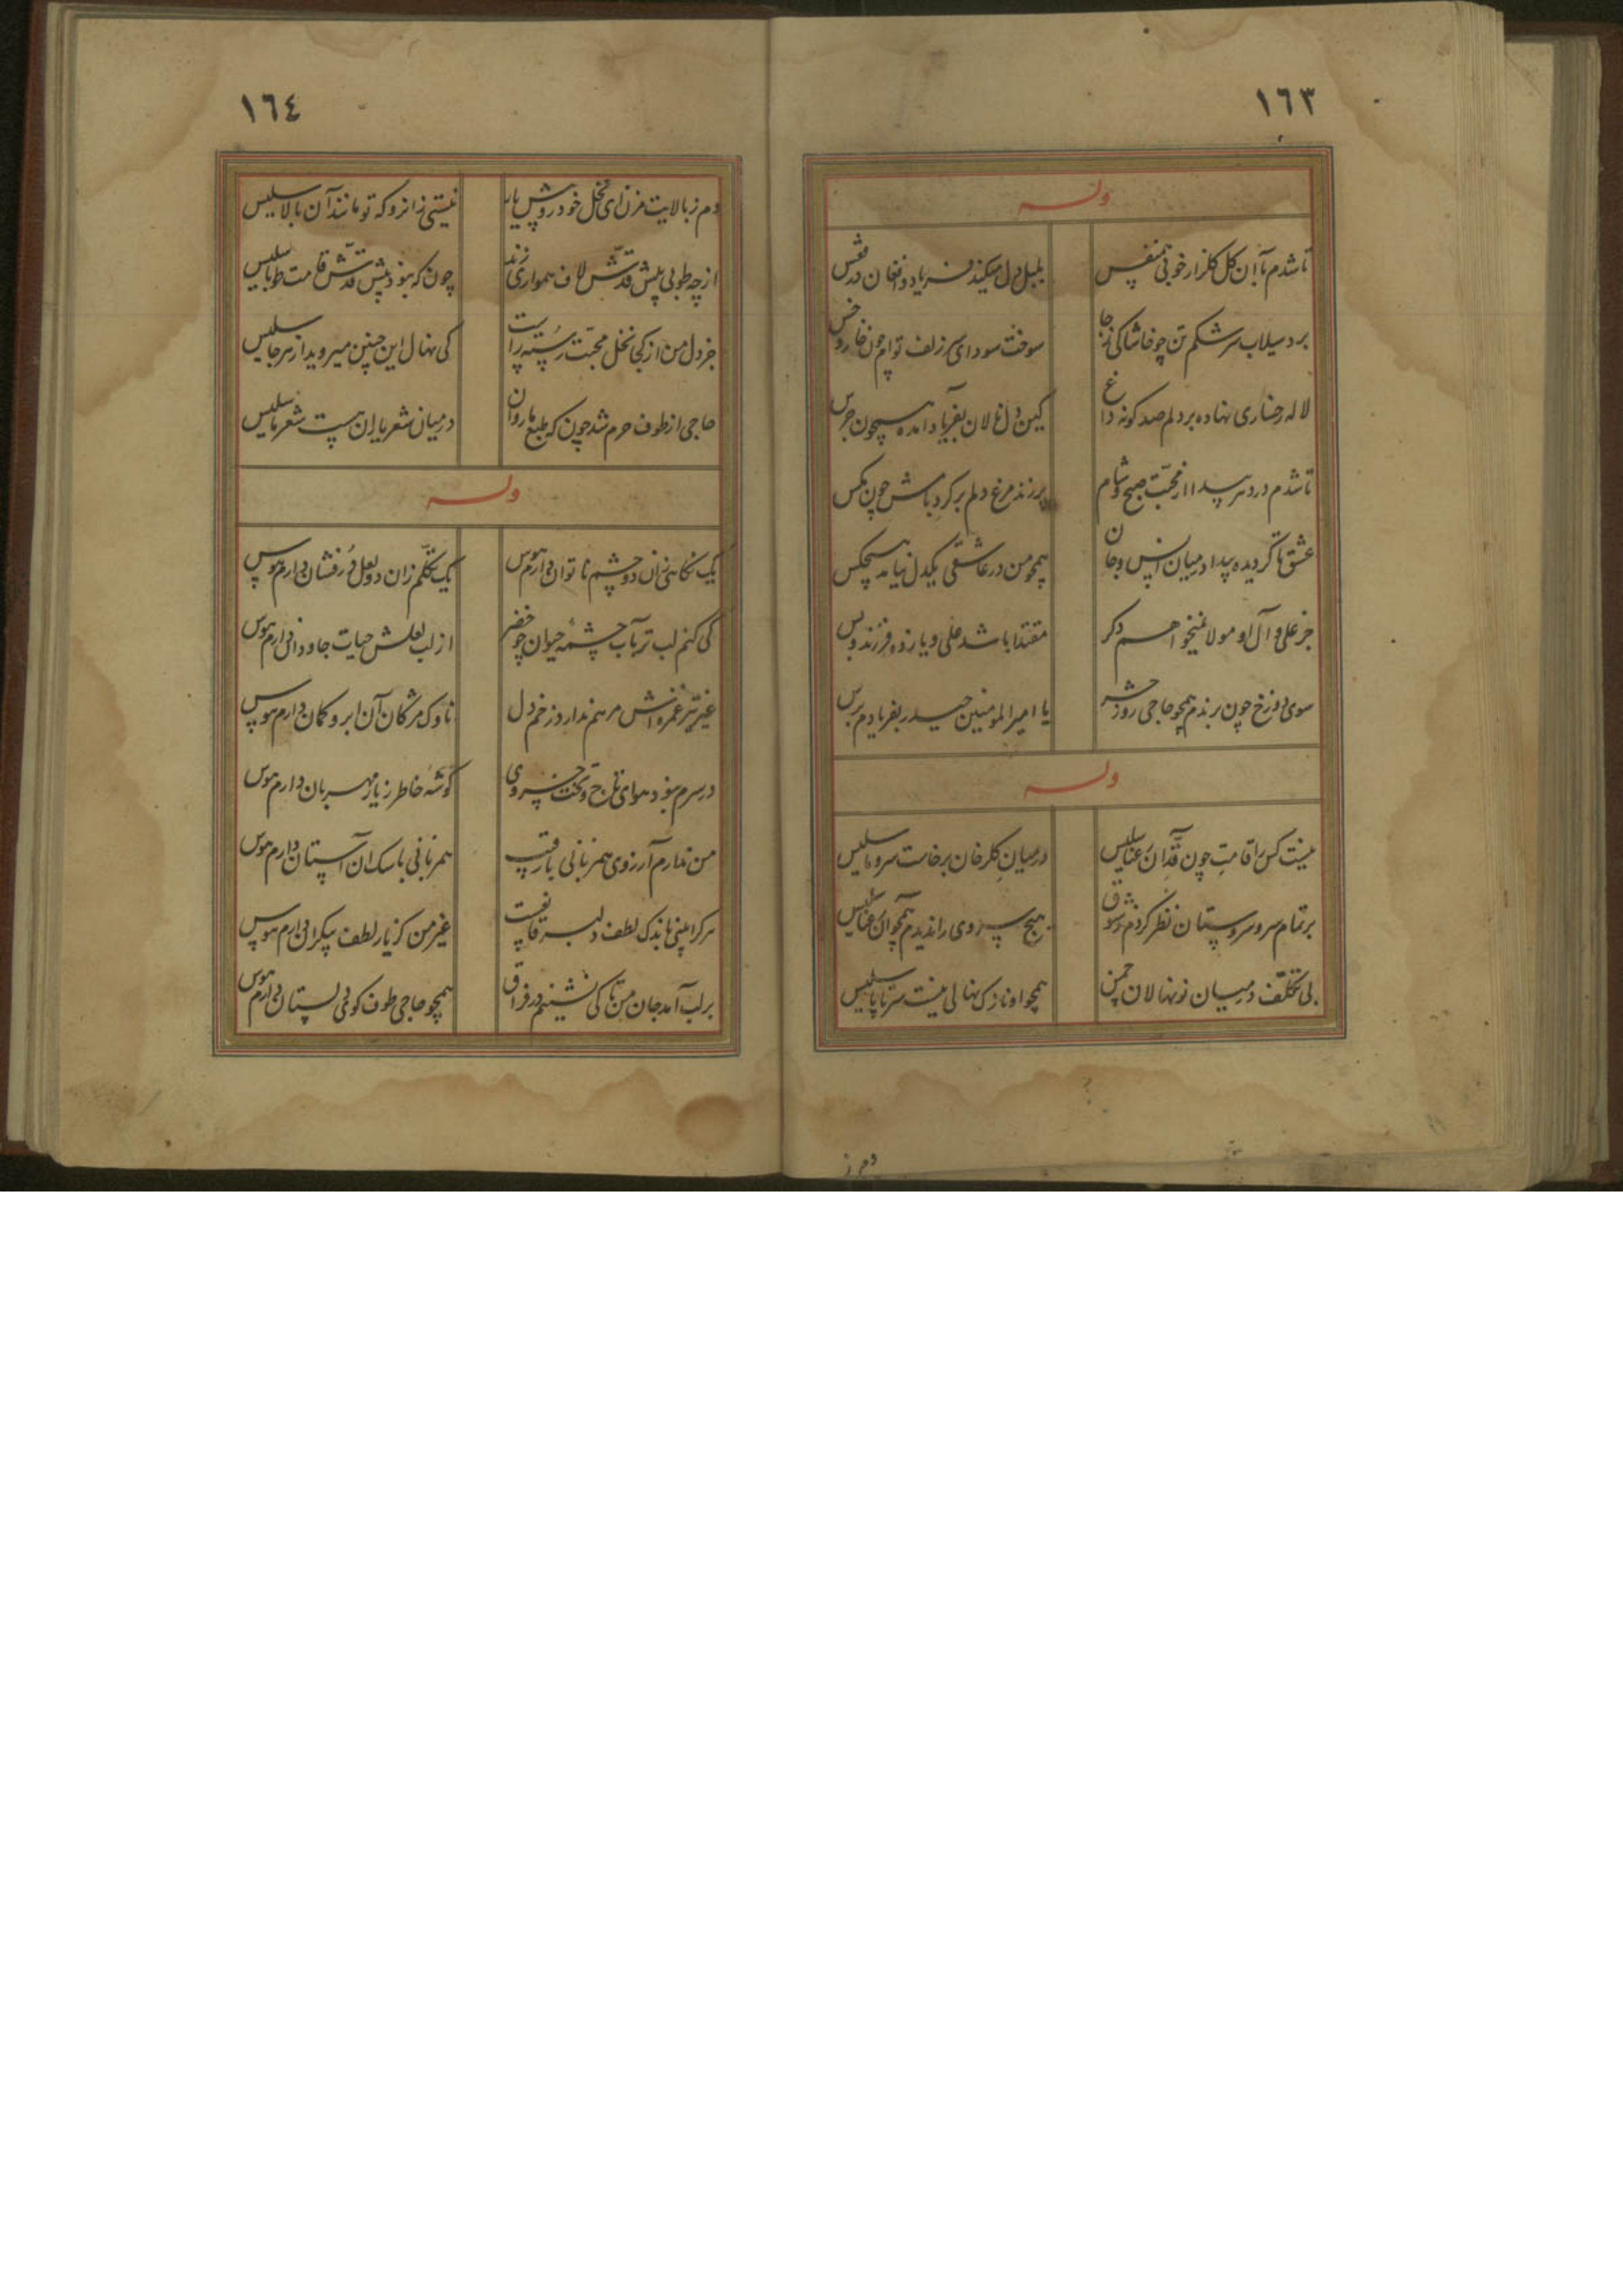 ١٦٣
وله
تا شدم با آن گل گلزار خوبی همنفس
بلبل دل میکند فریاد و افغان در قفس
برد سیلاب سرشکم تن چو خاشاکی ز جا
سوخت سودای سر زلف توام چون خار و خس
لاله رخساری نهاده بر دلم صد کونه داغ
کین دل نالان بفریاد آمده همچون جرس
تا شدم در دهر پیدا از محبت صبح و شام
پر زند مرغ دلم بر کرد بامش چون مکس
عشق تا کردیده پیدا در میان انس و جان
همچو من در عاشقی یکدل نیامد هیچکس
جز علی و آل او مولا نمیخواهم دکر
مقتدا باشد علی و یازده فرزند و بس
سوی دوزخ چون برندم همچو حاجی روز حشر
یا امیرالمومنین حیدر بفریادم برس
وله
نیست کس را قامت چون قد آن رعنا سلیس
در میان کلرخان برخاست سرو ما سلیس
بر تمام سرو سروستان نظر کردم ز شوق
هیچ سروی را ندیدم همچو آن رعنا سلیس
بی تکلف در میان نونهالان چمن
همچو او نازک نهالی نیست سر تا پا سلیس
دم ز
١٦٤
دم ز بالایت مزن ای نخل خودروش یار
نیستی زانرو که تو مانند آن بالا سلیس
از چه طوبی پیش قدش لاف همواری زند
چون که نبود پیش قدش قامت طوبا سلیس
جز دل من از کجا نخل محبت رسته راست
کی نهال این چنین میروید از هر جا سلیس
حاجی از طوف حرم شد چون که طبع ما روان
در میان شعر یاران هست شعر ما سلیس
وله
یک نکاهی زان دو چشم ناتوان دارم هوس
یک تکلم زان دو لعل درفشان دارم هوس
کی کنم لب تر بآب چشمه حیوان چو خضر
از لب لعلش حیات جاودانی دارم هوس
غیر تیر غمزه اش مرهم ندارد زخم دل
ناوک مژکان آن ابرو کمان دارم هوس
در سرم نبود هوای تاج و تخت خسروی
کوشه خاطر ز یار مهربان دارم هوس
من ندارم آرزوی همزبانی با رقیب
همزبانی با سک آن آستان دارم هوس
هر کرا بینی باندک لطف دلبر قانعست
غیر من کز یار لطف بیکران دارم هوس
بر لب آمد جان من تا کی نشینم در فراق
همچو حاجی طوف کوی دلستان دارم هوس